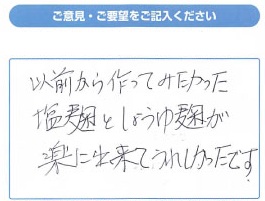 ご意見・ご要望をご記入ください
以前から作ってみたかった
塩麹としょうゆ麹が
楽に出来てうれしかったです